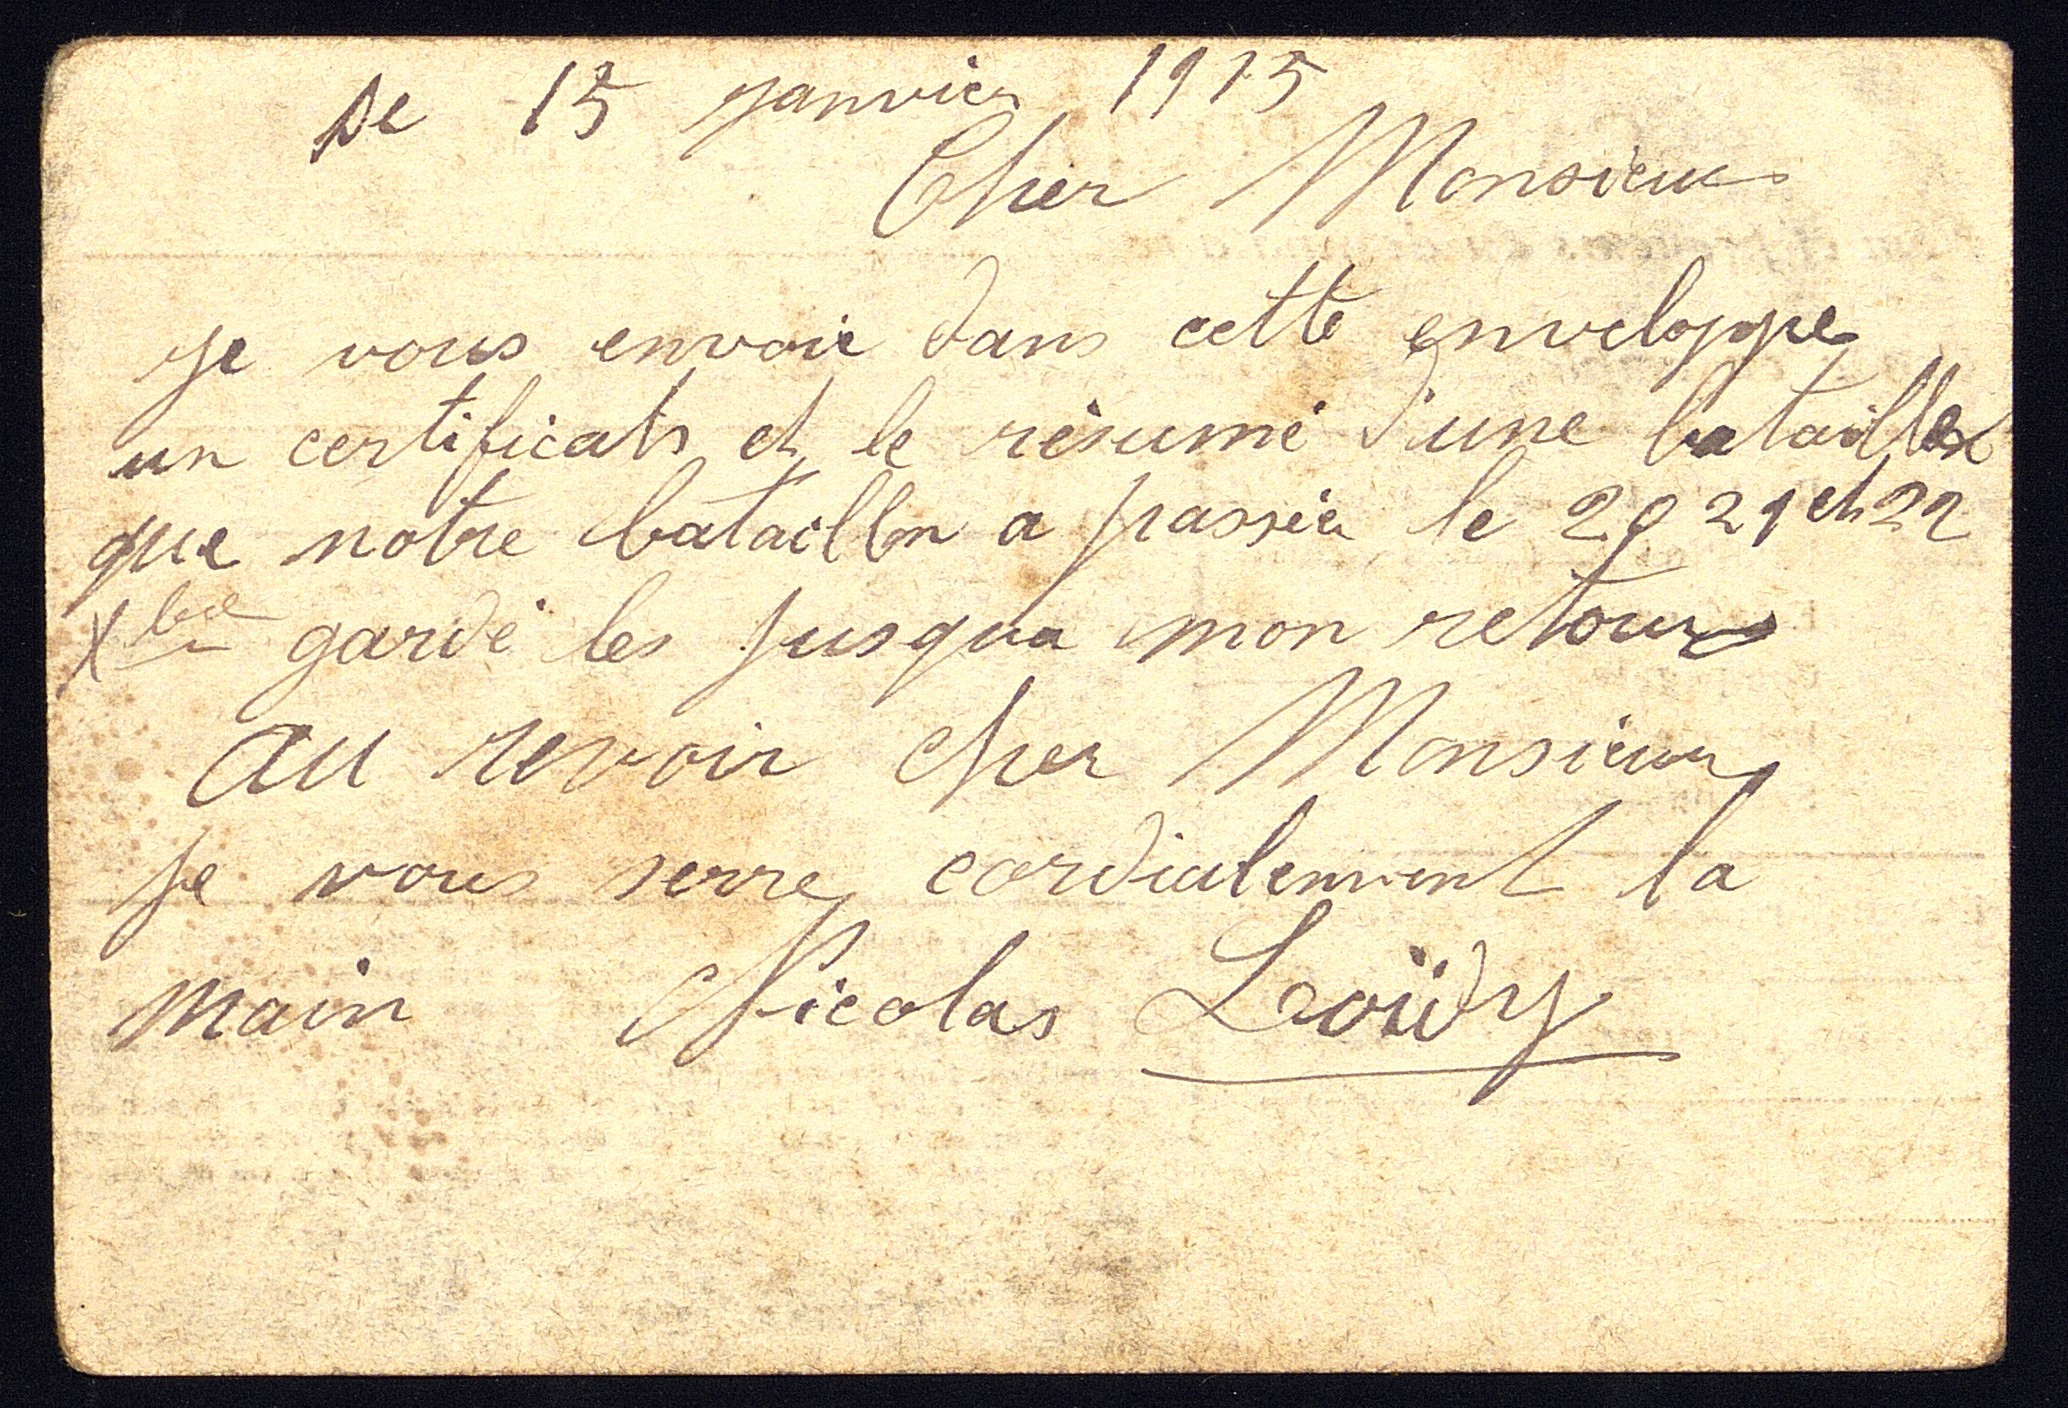 De 15 janvier 1915
Cher Monsieur
je vous envoie dans cette enveloppe
un certificats et le résumé d'une bataille
que notre bataillon a passée le 20 21 et 22
Xbre gardé les jusqua mon retour
au revoir cher Monsieur
je vous serre cordialement la
main Nicolas Loüdy